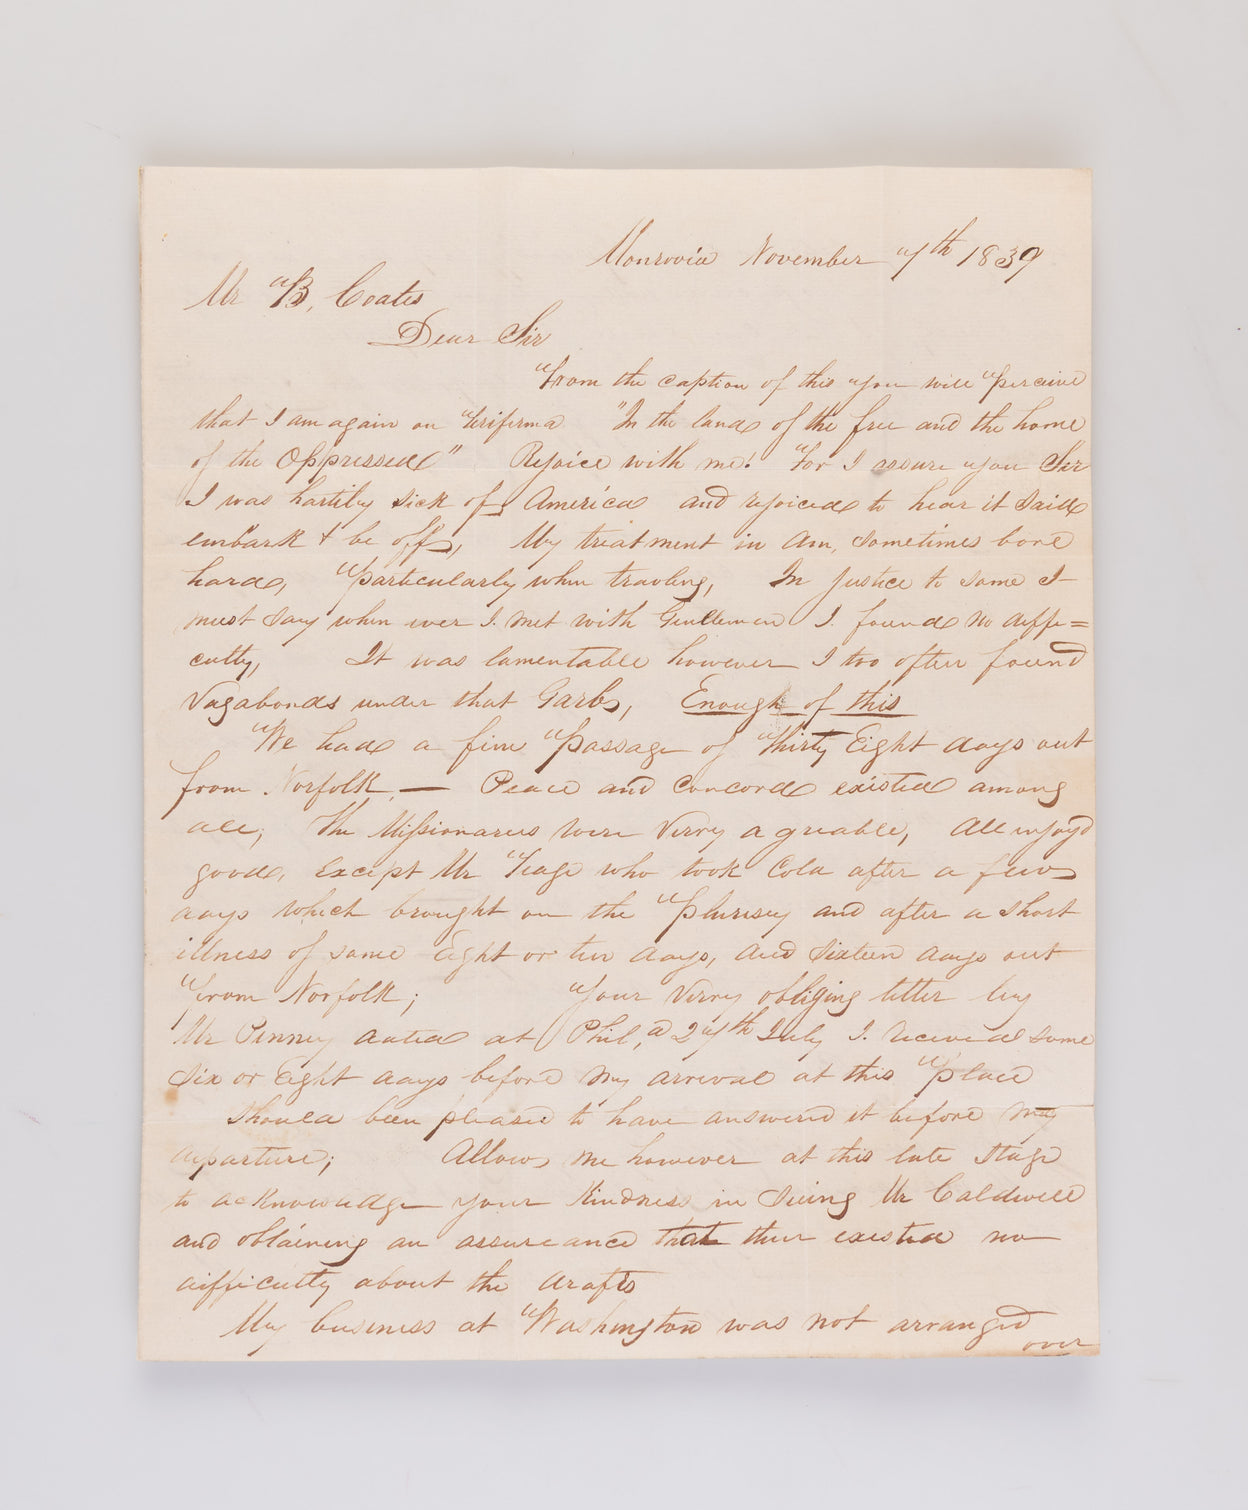 Monrovia November 7th 1839
Mr B. Coates
Dear Sir
From the caption of this you will perceive
that I am again on Teriferma "In the land of the free and the home
of the Oppressed" Rejoice with me! For I assure you Sir
I was hartily sick of America and rejoiced to hear it said
embark & be off, My treatment in Am, sometimes bore
hard, particularly when travling, In justice to some I
must say when ever I met with Gentlemen I found no diffi=
culty, It was lamentable however I too often found
Vagabonds under that Garb, Enough of this
We had a fine passage of Thirty Eight days out
from Norfolk, — Peace and Concord existed among
all, The Missionaries were Verry agreable, All injoyd
good, Except Mr who took Cold after a few
days which brought on the plurisey and after a short
illness of some Eight or ten days, died sixteen days out
From Norfolk; Your Verry obliging letter by
Mr Pinney dated at Phil,a 27th July I received some
six or Eight days before my arrival at this place
should been pleased to have answered it before my
departure; Allow me however at this late stage
to acknowledge your kindness in Seeing Mr Caldwell
and obtaining an assureance that their existed no
difficulty about the drafts
My business at Washington was not arranged
over